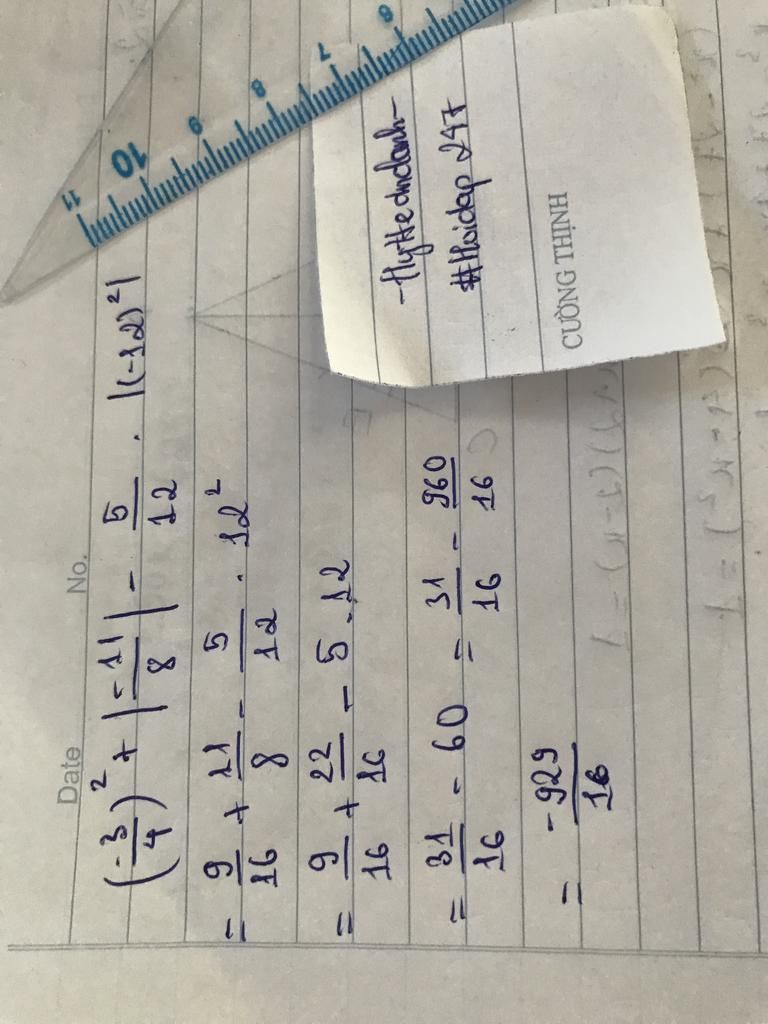 Date No.
(-3/4)² + |-11/8| - 5/12 . |(-12)²|
= 9/16 + 11/8 - 5/12 . 12²
= 9/16 + 22/16 - 5.12
= 31/16 - 60 = 31/16 - 960/16
= -929/16
#Hoidap 247
CƯỜNG THỊNH
11 10 9 8 7 6